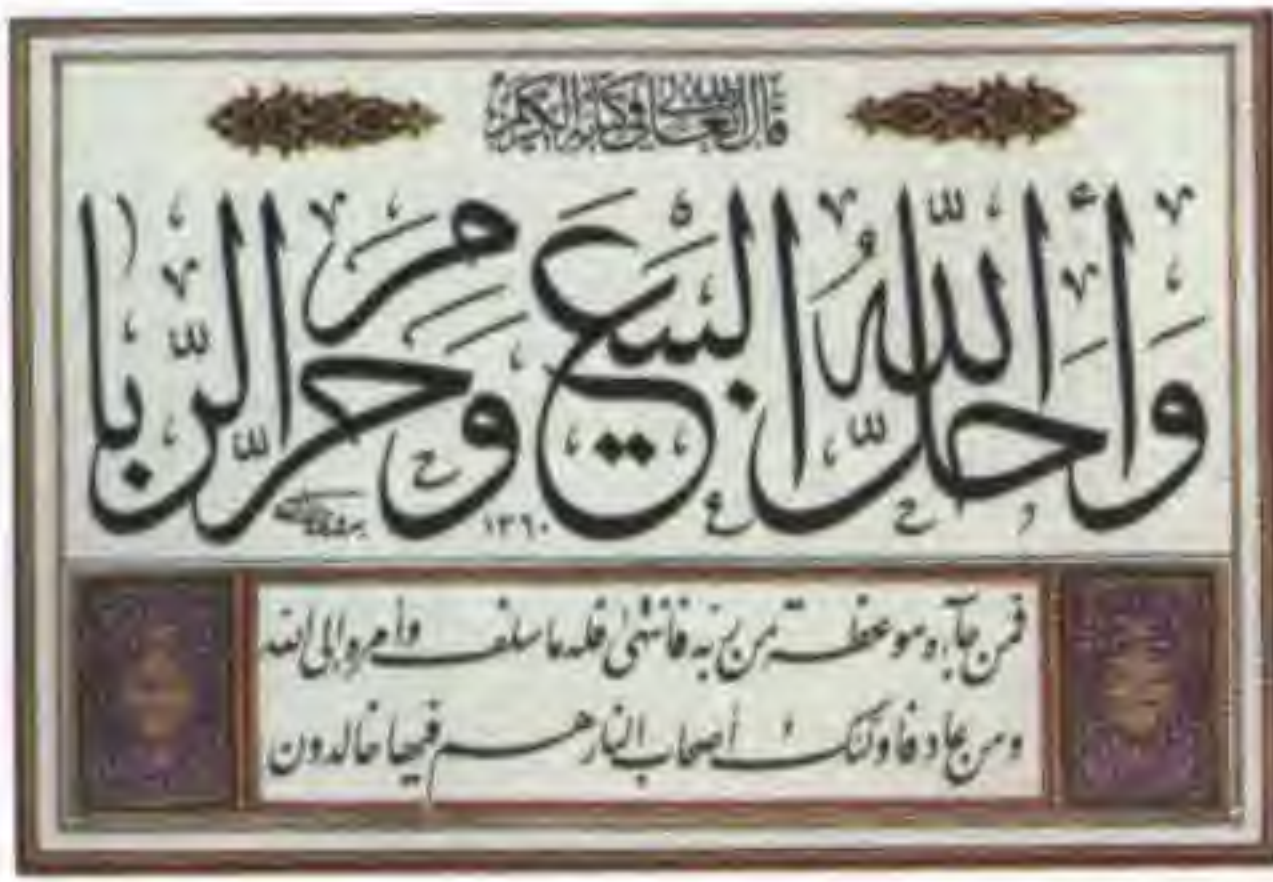 قال الله تعالى في كتابه الكريم
وَأَحَلَّ اللّٰهُ الْبَيْعَ وَحَرَّمَ الرِّبَا
١٣٦٠
فمن جآءه موعظة من ربه فانتهىٰ فله ما سلف وأمره إلى الله
ومن عاد فأولئك أصحاب النار هم فيها خالدون